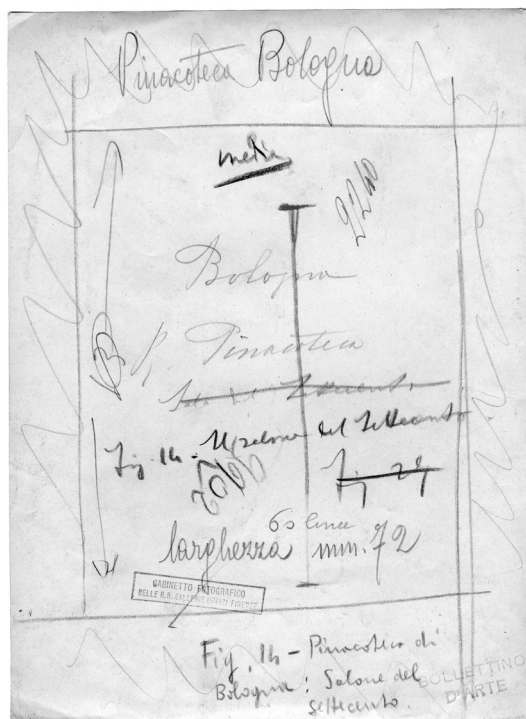 Pinacoteca Bologna
media
2240
Bologna
R. Pinacoteca
Sala del Settecento
Fig. 14 - Il salone del Settecento
Fig 29
60 linee
larghezza mm. 72
GABINETTO FOTOGRAFICO
DELLE R.R. GALLERIE (UFFIZI) FIRENZE
Fig. 14 - Pinacoteca di
Bologna: Salone del
Settecento.
BOLLETTINO
D'ARTE